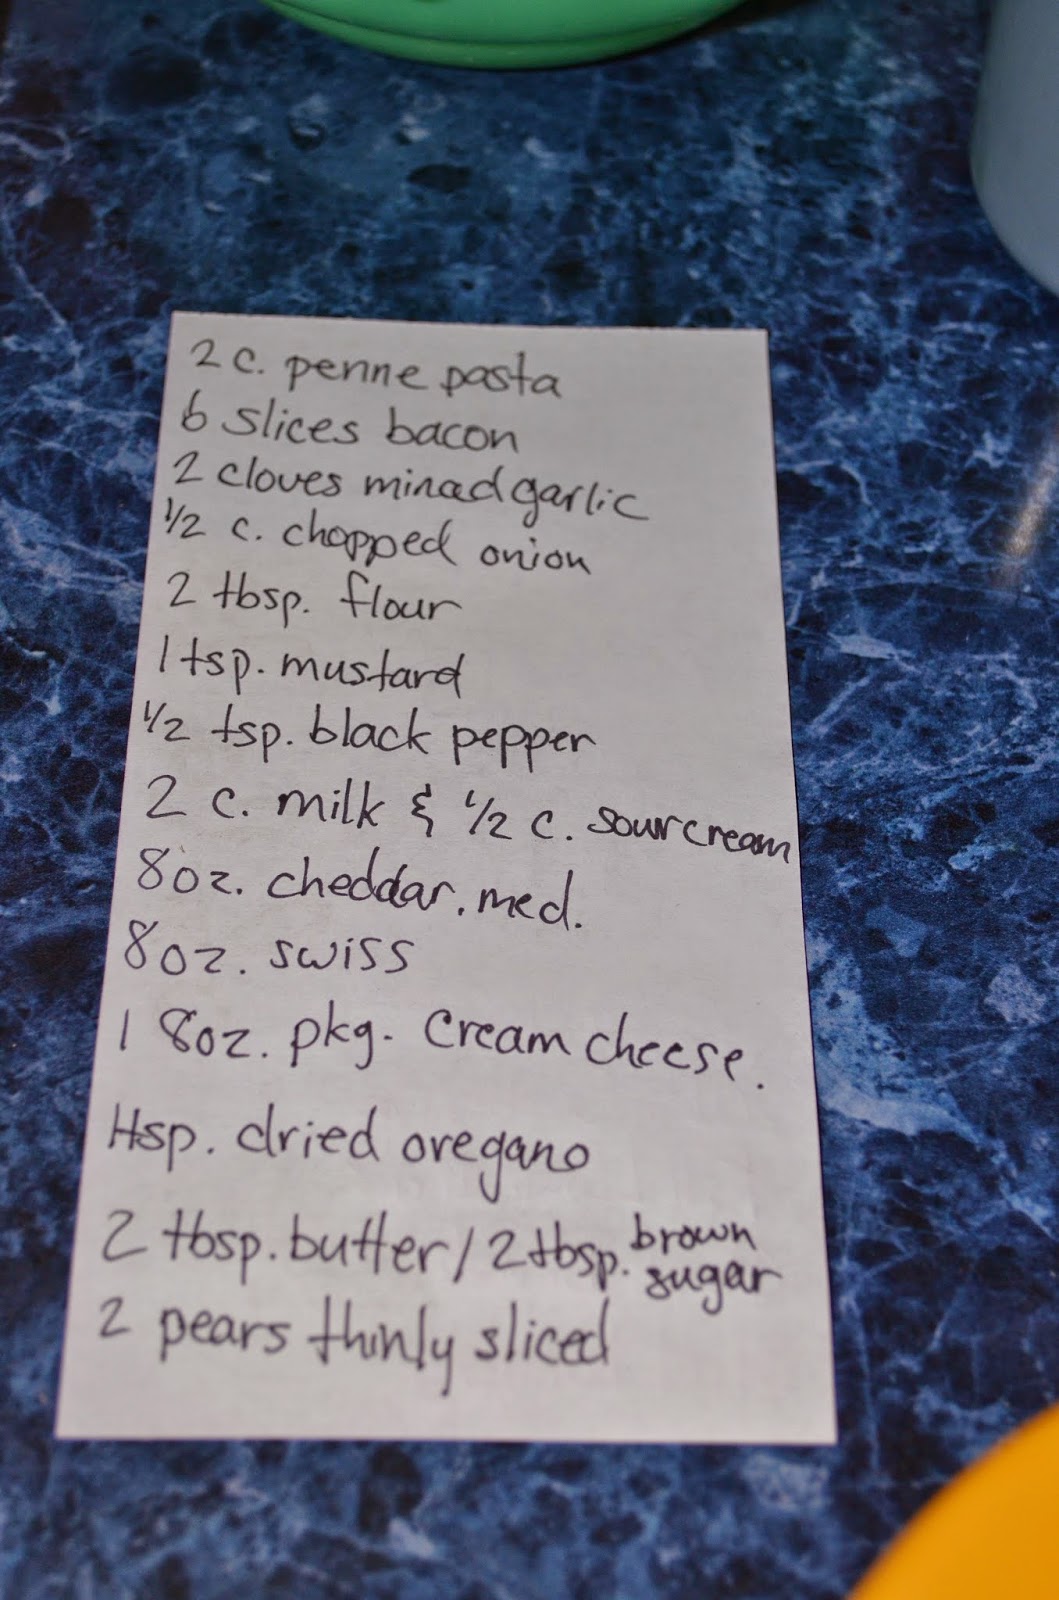 2 c. penne pasta
6 slices bacon
2 cloves minced garlic
1/2 c. chopped onion
2 tbsp. flour
1 tsp. mustard
1/2 tsp. black pepper
2 c. milk & 1/2 c. sour cream
8oz. cheddar. med.
8oz. swiss
1 8oz. pkg. cream cheese.
1 tsp. dried oregano
2 tbsp. butter / 2 tbsp. brown sugar
2 pears thinly sliced